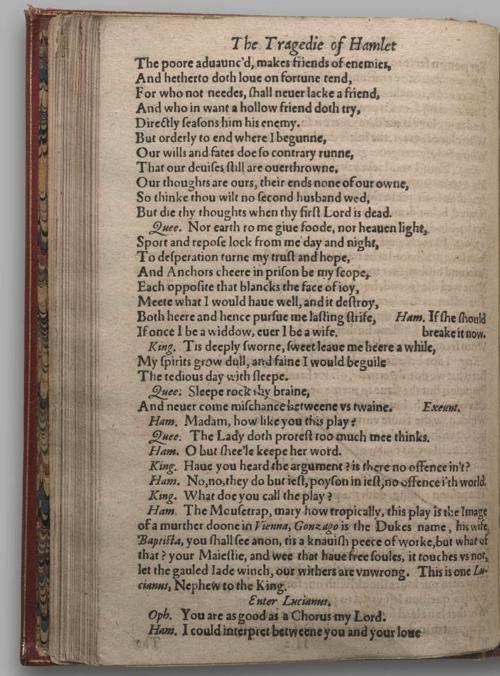 The Tragedie of Hamlet
The poore aduaunc'd, makes friends of enemies,
And hetherto doth loue on fortune tend,
For who not needes, ſhall neuer lacke a friend,
And who in want a hollow friend doth try,
Directly ſeaſons him his enemy.
But orderly to end where I begunne,
Our wills and fates doe ſo contrary runne,
That our deuiſes ſtill are ouerthrowne,
Our thoughts are ours, their ends none of our owne,
So thinke thou wilt no ſecond husband wed,
But die thy thoughts when thy firſt Lord is dead.
Quee. Nor earth to me giue foode, nor heauen light,
Sport and repoſe lock from me day and night,
To deſperation turne my truſt and hope,
And Anchors cheere in priſon be my ſcope,
Each oppoſite that blancks the face of ioy,
Meete what I would haue well, and it deſtroy,
Both heere and hence purſue me laſting ſtrife, Ham. If ſhe ſhould
If once I be a widdow, euer I be a wife. breake it now.
King. Tis deeply ſworne, ſweet leaue me heere a while,
My ſpirits grow dull, and faine I would beguile
The tedious day with ſleepe.
Quee. Sleepe rock thy braine,
And neuer come miſchance betweene vs twaine. Exeunt.
Ham. Madam, how like you this play?
Quee. The Lady doth proteſt too much mee thinks.
Ham. O but ſhee'le keepe her word.
King. Haue you heard the argument? is there no offence in't?
Ham. No, no, they do but ieſt, poyſon in ieſt, no offence i'th world.
King. What doe you call the play?
Ham. The Mouſetrap, mary how tropically, this play is the Image
of a murther doone in Vienna, Gonzago is the Dukes name, his wife
Baptiſta, you ſhall ſee anon, tis a knauiſh peece of worke, but what of
that? your Maieſtie, and wee that haue free ſoules, it touches vs not,
let the gauled Iade winch, our withers are vnwrong. This is one Lu-
cianus, Nephew to the King.
Enter Lucianus.
Oph. You are as good as a Chorus my Lord.
Ham. I could interpret betweene you and your loue